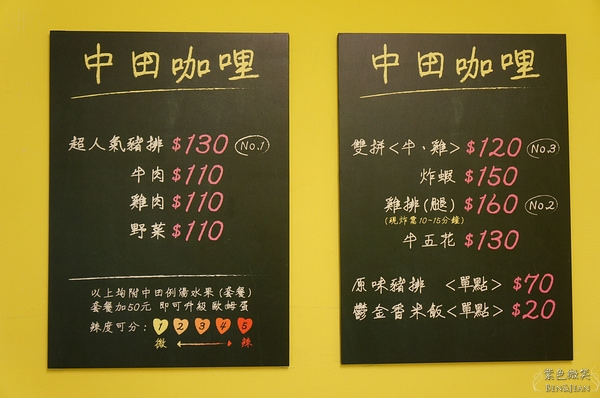 中田咖哩
超人氣豬排 $130 No.1
牛肉 $110
雞肉 $110
野菜 $110
以上均附中田例湯水果(套餐)
套餐加50元 即可升級歐姆蛋
辣度可分: 1 2 3 4 5
微 辣
中田咖哩
雙拼<牛、雞> $120 No.3
炸蝦 $150
雞排(腿) $160 No.2
(現炸需10~15分鐘)
牛五花 $130
原味豬排 <單點> $70
鬱金香米飯<單點> $20
紫色微笑
BEN&JEAN